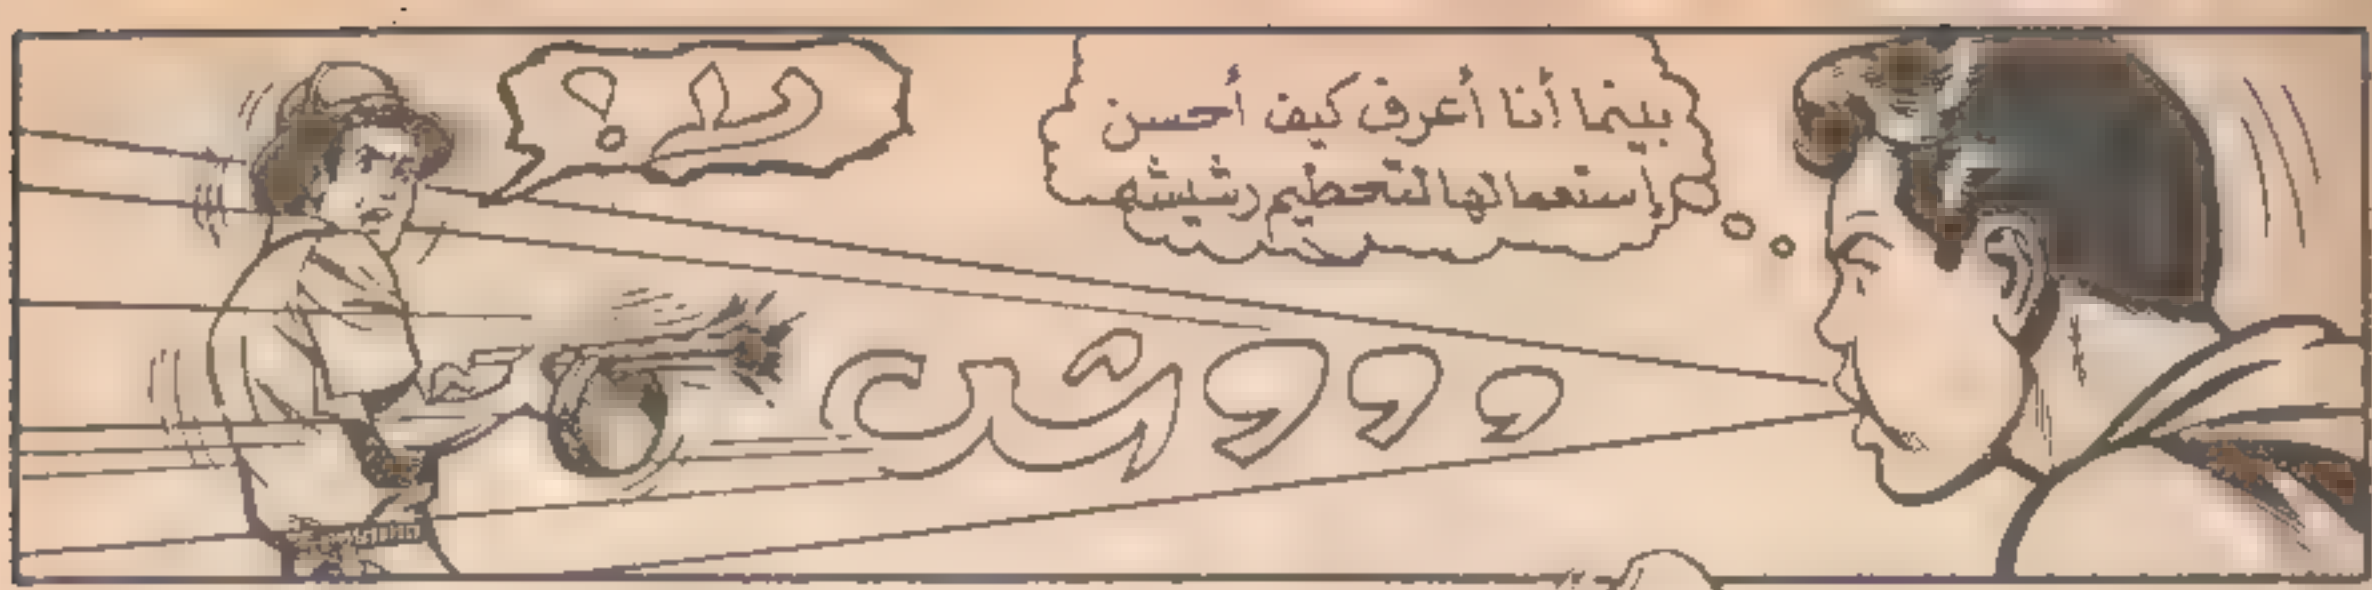 بينما أنا أعرف كيف أحسن
إستعمالها لتحطيم رشيشه
وووش